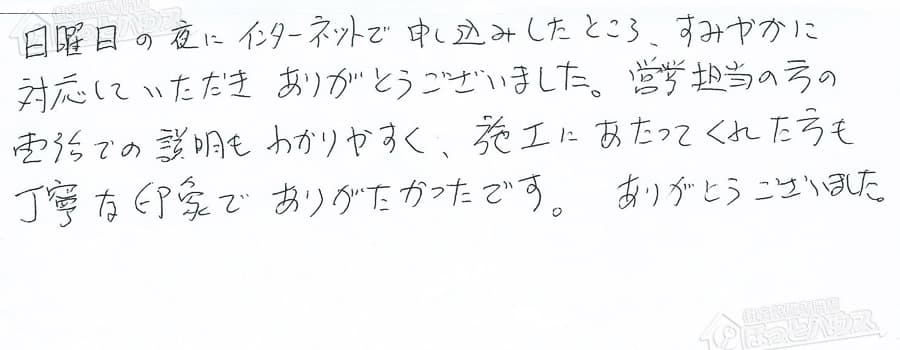 日曜日の夜にインターネットで申し込みしたところ、すみやかに
対応していただきありがとうございました。営業担当の方の
電話での説明もわかりやすく、施工にあたってくれた方も
丁寧な印象でありがたかったです。 ありがとうございました。
ほっとハウス